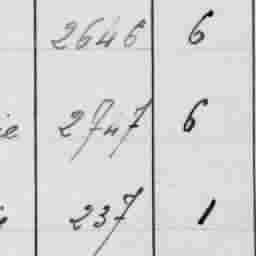 2646 6
ie 2747 6
237 1